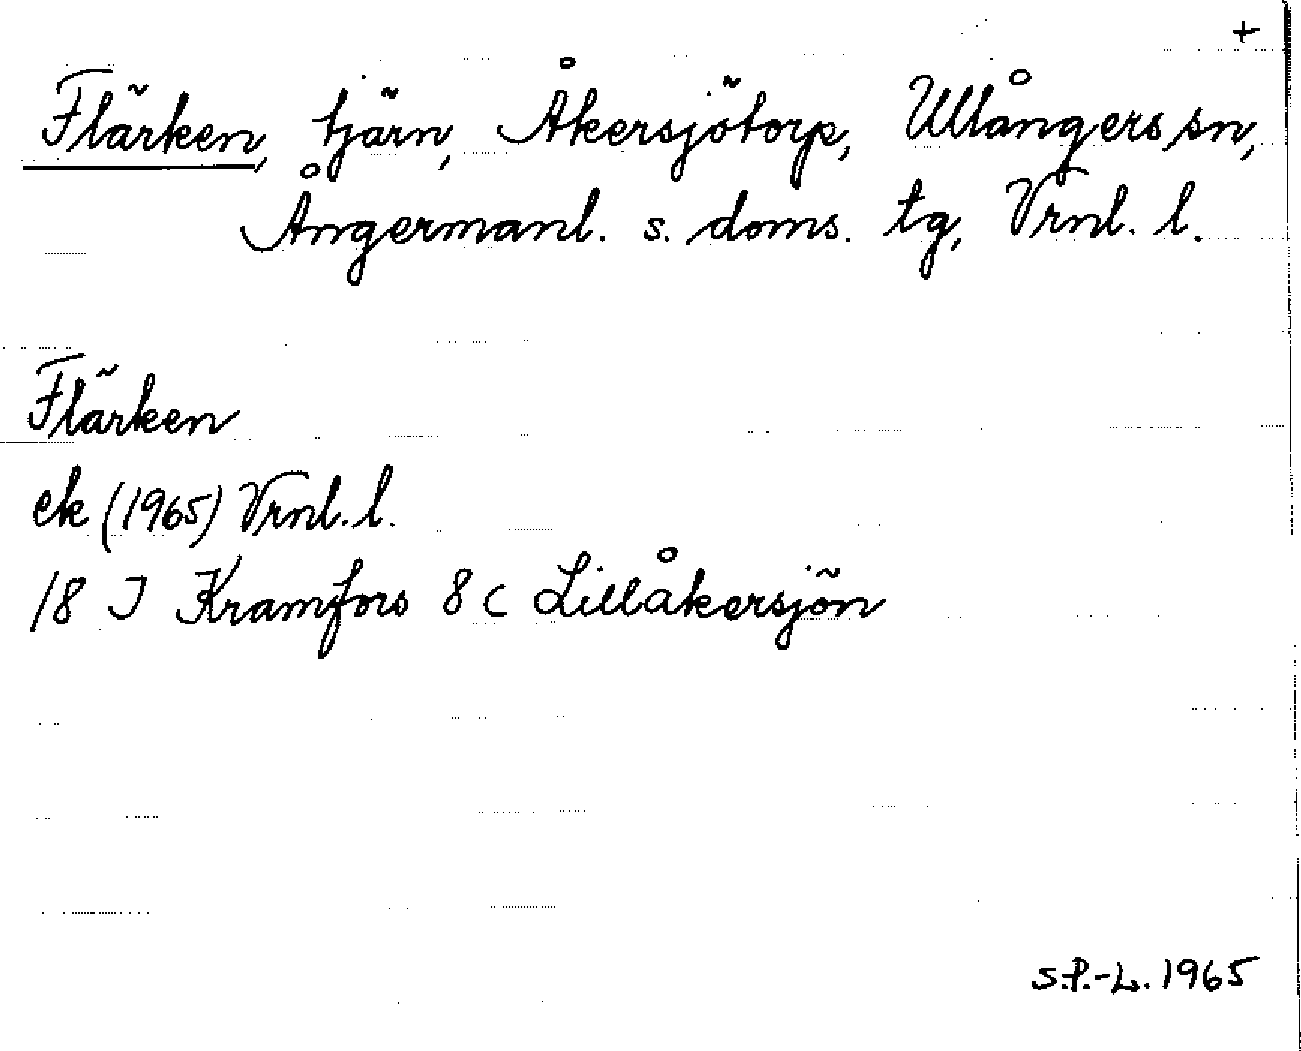 +
Flärken, tjärn, Åkersjötorp, Ullångers sn,
Ångermanl. s. doms. tg, Vrnl. l.
Flärken
ek (1965) Vrnl. l.
18 J Kramfors 8 c Lillåkersjön
S.P.-L. 1965